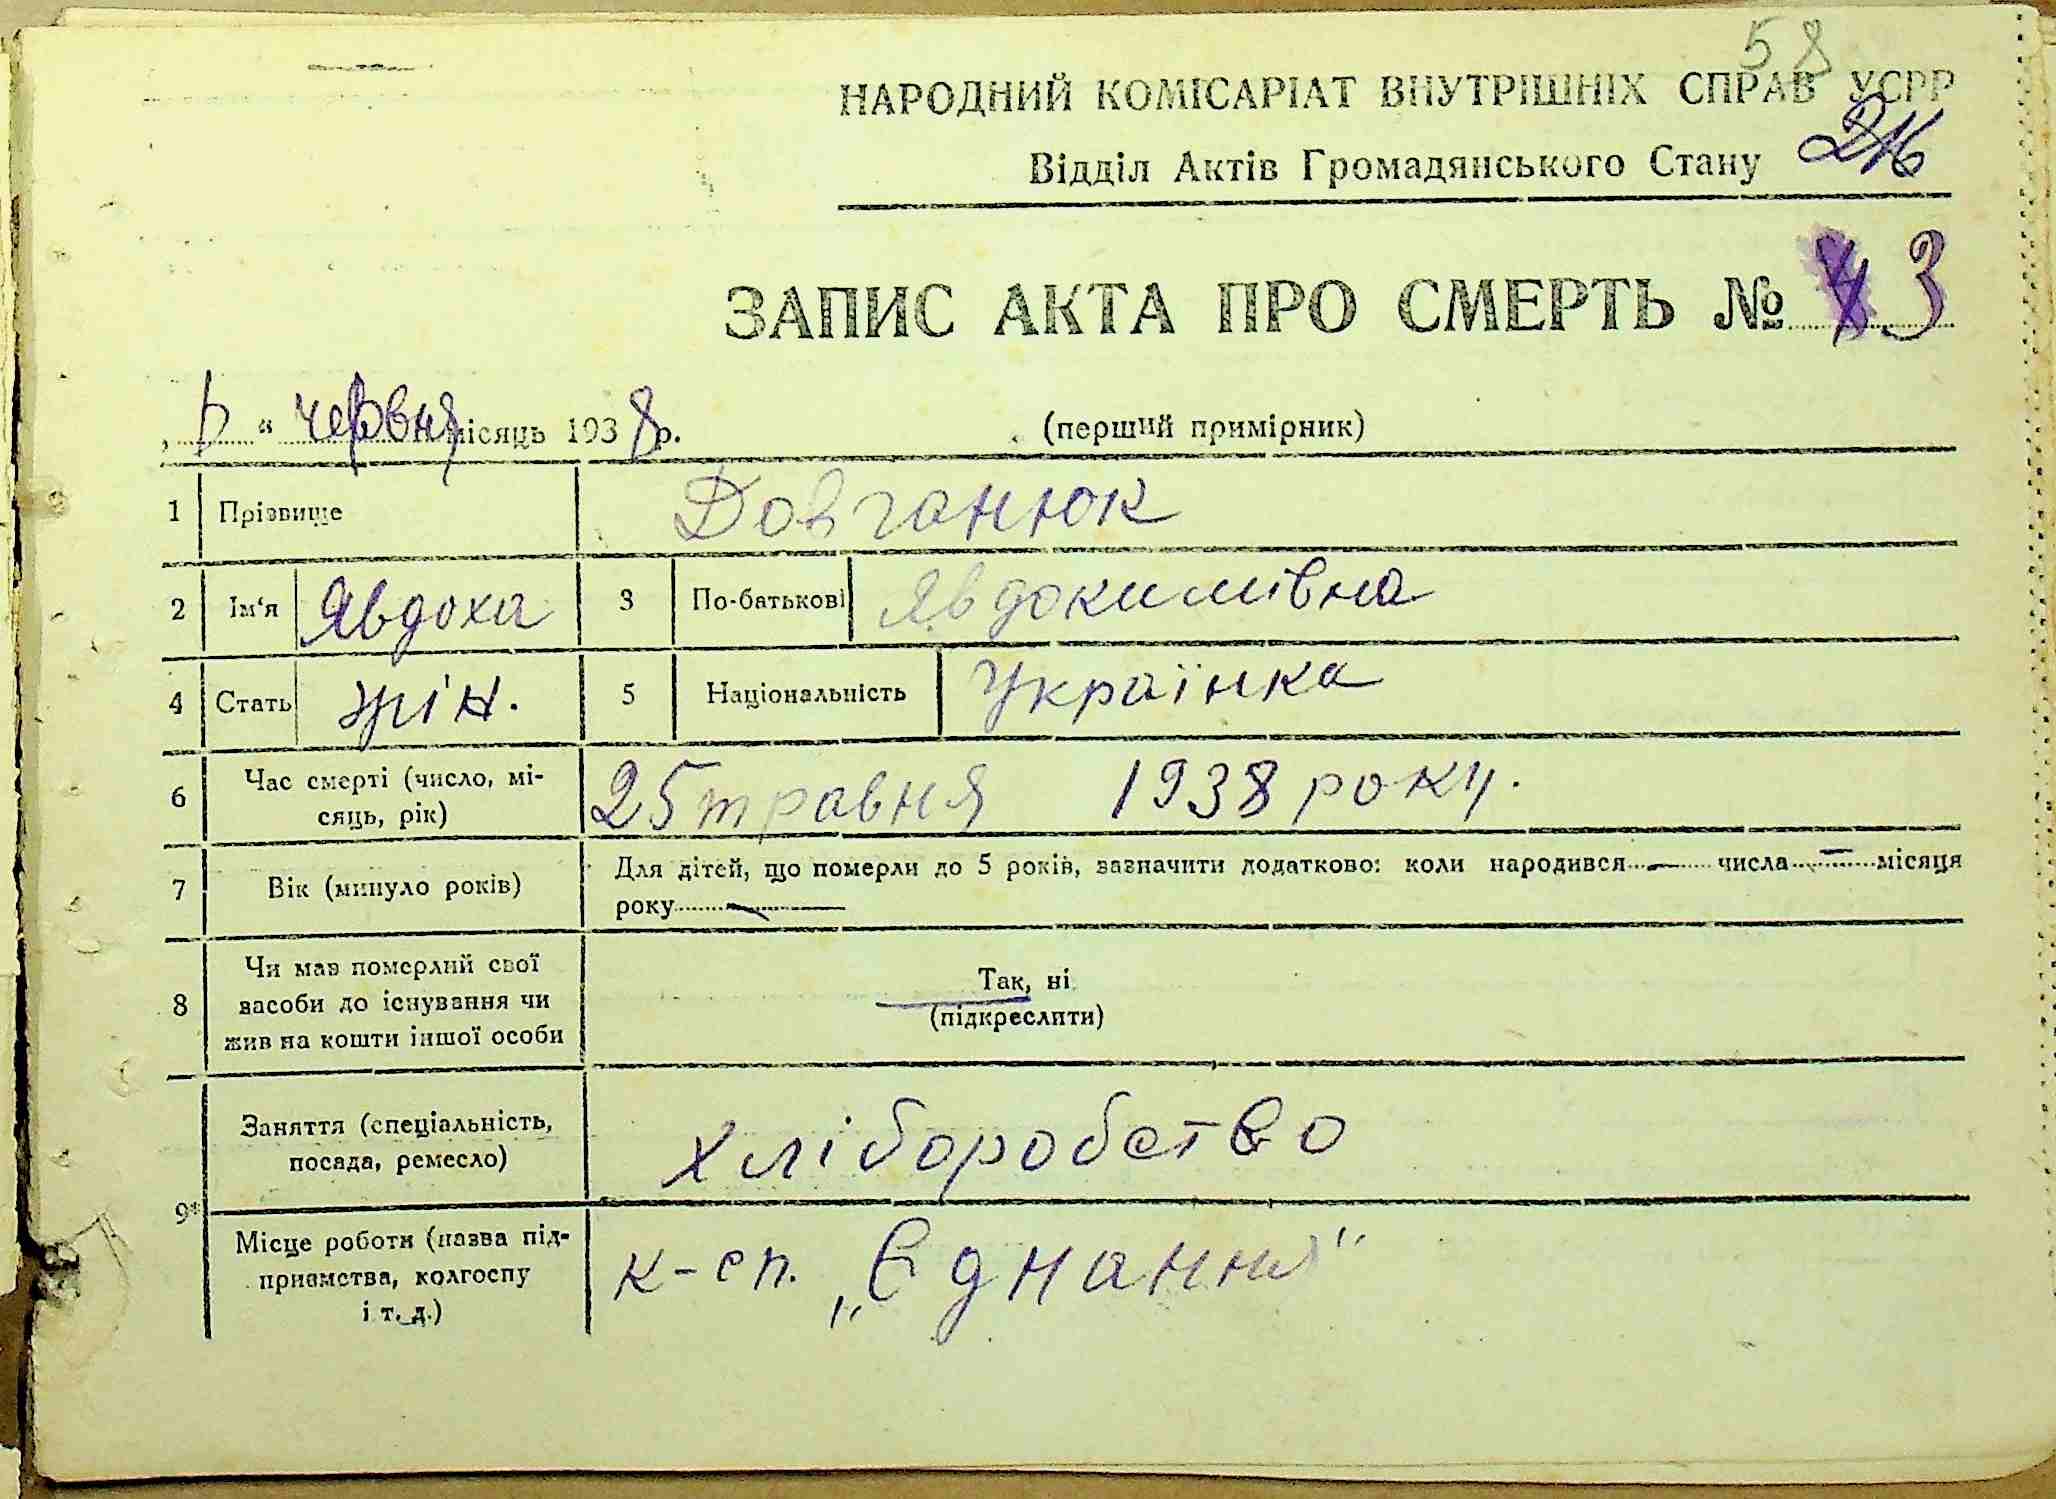 58
НАРОДНИЙ КОМІСАРІАТ ВНУТРІШНІХ СПРАВ УСРР
Відділ Актів Громадянського Стану
ЗАПИС АКТА ПРО СМЕРТЬ № 3
" червня місяць 1938 р. (перший примірник)
1 Прізвище Довганюк
2 Ім'я Явдоха 3 По-батькові Явдокимівна
4 Стать жін. 5 Національність Українка
6 Час смерті (число, мі-
сяць, рік) 25 травня 1938 року.
7 Вік (минуло років) Для дітей, що померли до 5 років, зазначити додатково: коли народився — числа — місяця
року —
8 Чи мав померлий свої
засоби до існування чи
жив на кошти іншої особи
Так, ні
(підкреслити)
9* Заняття (спеціальність,
посада, ремесло) Хліборобство
Місце роботи (назва під-
приємства, колгоспу
і т. д.) к-сп. „Єднання"